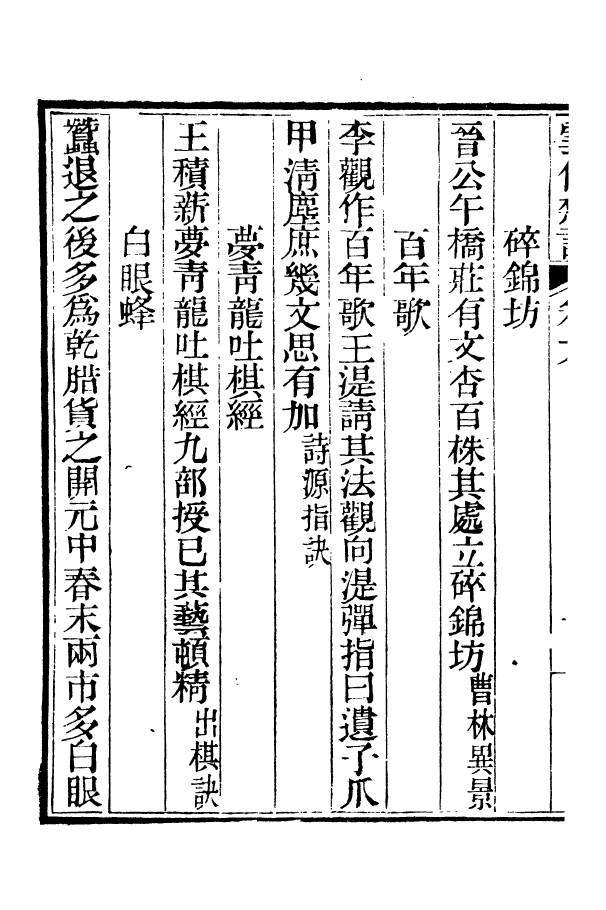 碎錦坊
晉公午橋莊有文杏百株其處立碎錦坊曹林異景
百年歌
李觀作百年歌王湜請其法觀向湜彈指曰遺子爪
甲淸塵庶幾文思有加詩源指訣
夢靑龍吐棋經
王積薪夢靑龍吐棋經九部授已其藝頓精出棋訣
白眼蜂
蠶退之後多爲乾腊貨之開元中春末兩市多白眼